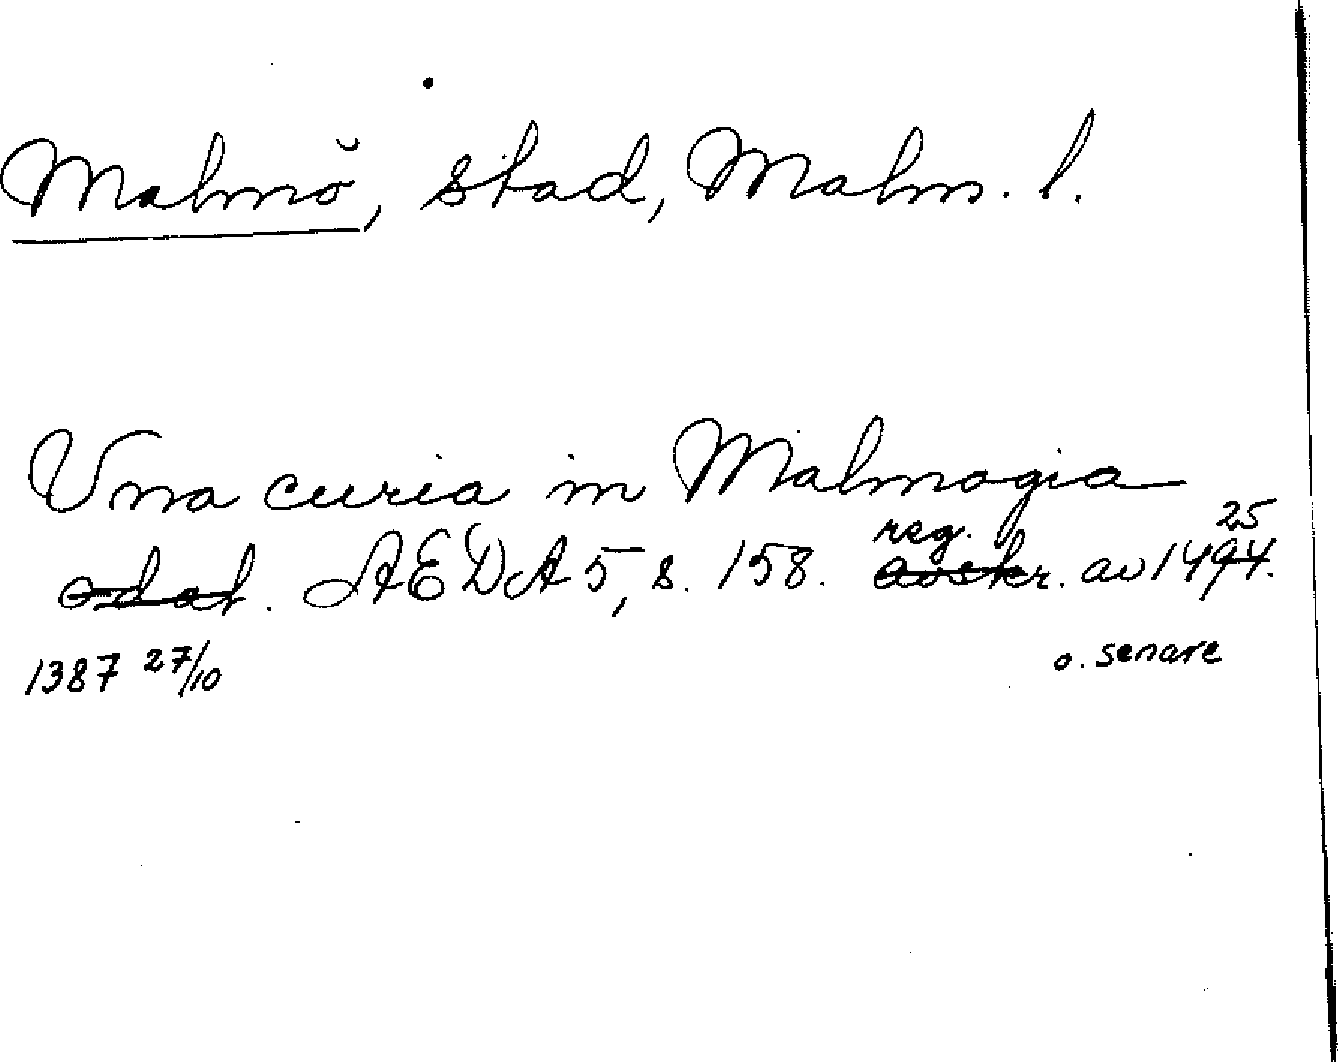 Malmö, stad, Malm. l.
Una curia in Malmøgia
odat. AEDA 5, s. 158. reg. avskr. av 1494. 25
1387 27/10 o. senare